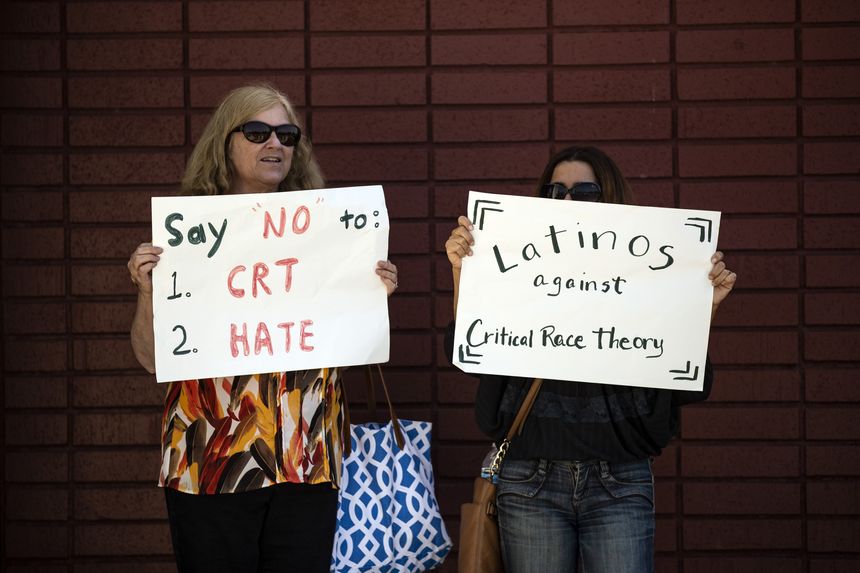 Say "NO" to:
1. CRT
2. HATE
Latinos
against
Critical Race Theory